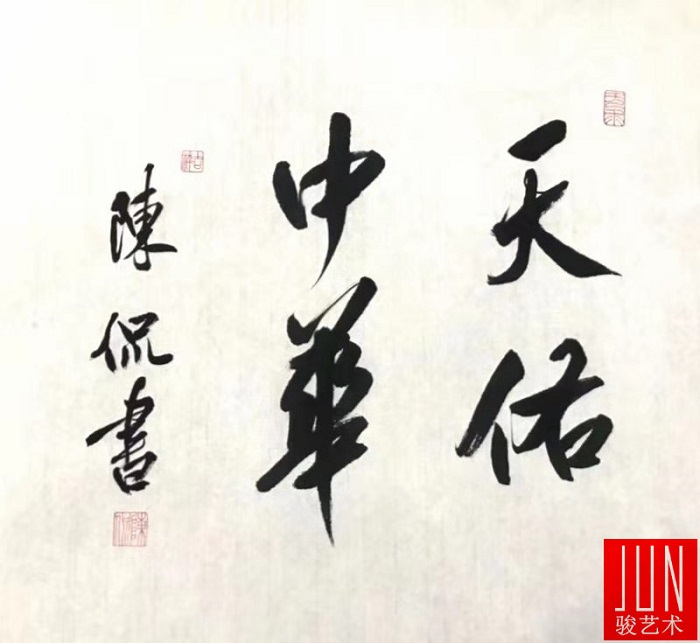 天佑
中華
陳侃書
JUN
骏艺术